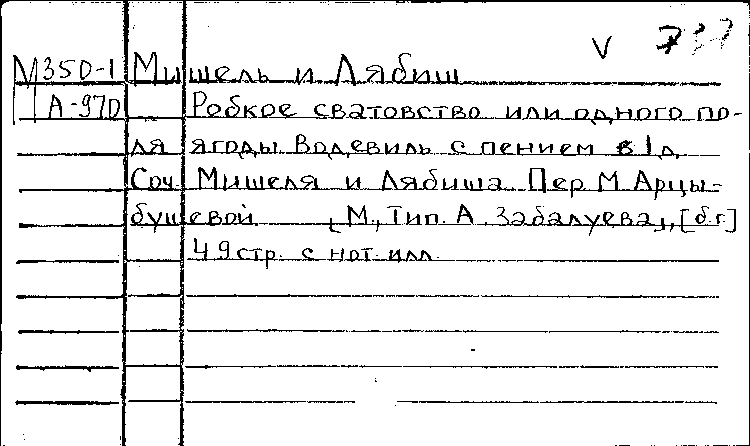 V 737
М350-1 Мишель и Лябиш
А-970 Робкое сватовство или одного по-
ля ягоды. Водевиль с пением в 1 д.
Соч. Мишеля и Лябиша. Пер. М. Арцы-
бушевой [М., Тип. А. Забалуева], [б.г.]
49 стр. с нот. илл.